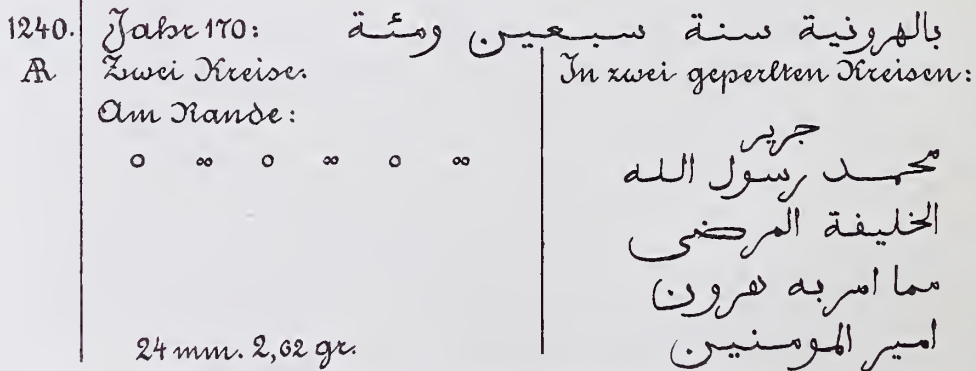 1240. Jahr 170: بالهرونية سنة سبعين ومئة
AR Zwei Kreise.
Am Rande:
o ∞ o ∞ o ∞
24 mm. 2,62 gr.
In zwei geperlten Kreisen:
جرير
محمد رسول الله
الخليفة المرضى
مما امر به هرون
امير المومنين